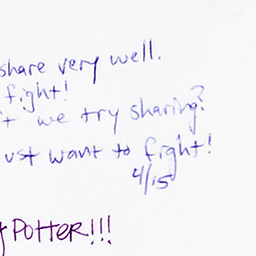 share very well.
fight!
we try sharing?
want to fight!
4/15
Potter!!!